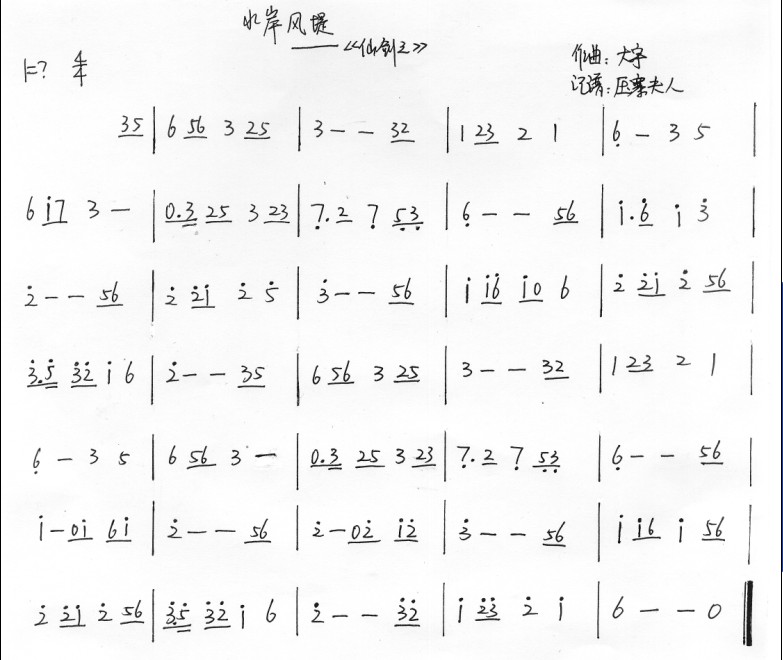 水岸风堤
——《仙剑之》
1=? 4/4
作曲：大宇
记谱：压寨夫人
35 | 6 56 3 25 | 3 - - 32 | 1 23 2 1 | 6̣ - 3 5 |
6 i̇7 3 - | 0.3 25 3 23 | 7̣.2 7̣ 5̣3̣ | 6̣ - - 56 | i̇.6̇ i̇ 3̇ |
2̇ - - 56 | 2̇ 2̇i̇ 2̇ 5̇ | 3̇ - - 56 | i̇ i̇6̇ i̇0 6 | 2̇ 2̇i̇ 2̇ 56 |
3̇.5̇ 3̇2̇ i̇ 6 | 2̇ - - 35 | 6 56 3 25 | 3 - - 32 | 1 23 2 1 |
6̣ - 3 5 | 6 56 3 - | 0.3 25 3 23 | 7̣.2 7̣ 5̣3̣ | 6̣ - - 56 |
i̇ - 0i̇ 6i̇ | 2̇ - - 56 | 2̇ - 02̇ i̇2̇ | 3̇ - - 56 | i̇ i̇6 i̇ 56 |
2̇ 2̇i̇ 2̇ 56 | 3̇.5̇ 3̇2̇ i̇ 6 | 2̇ - - 3̇2̇ | i̇ 2̇3̇ 2̇ i̇ | 6 - - 0 ‖